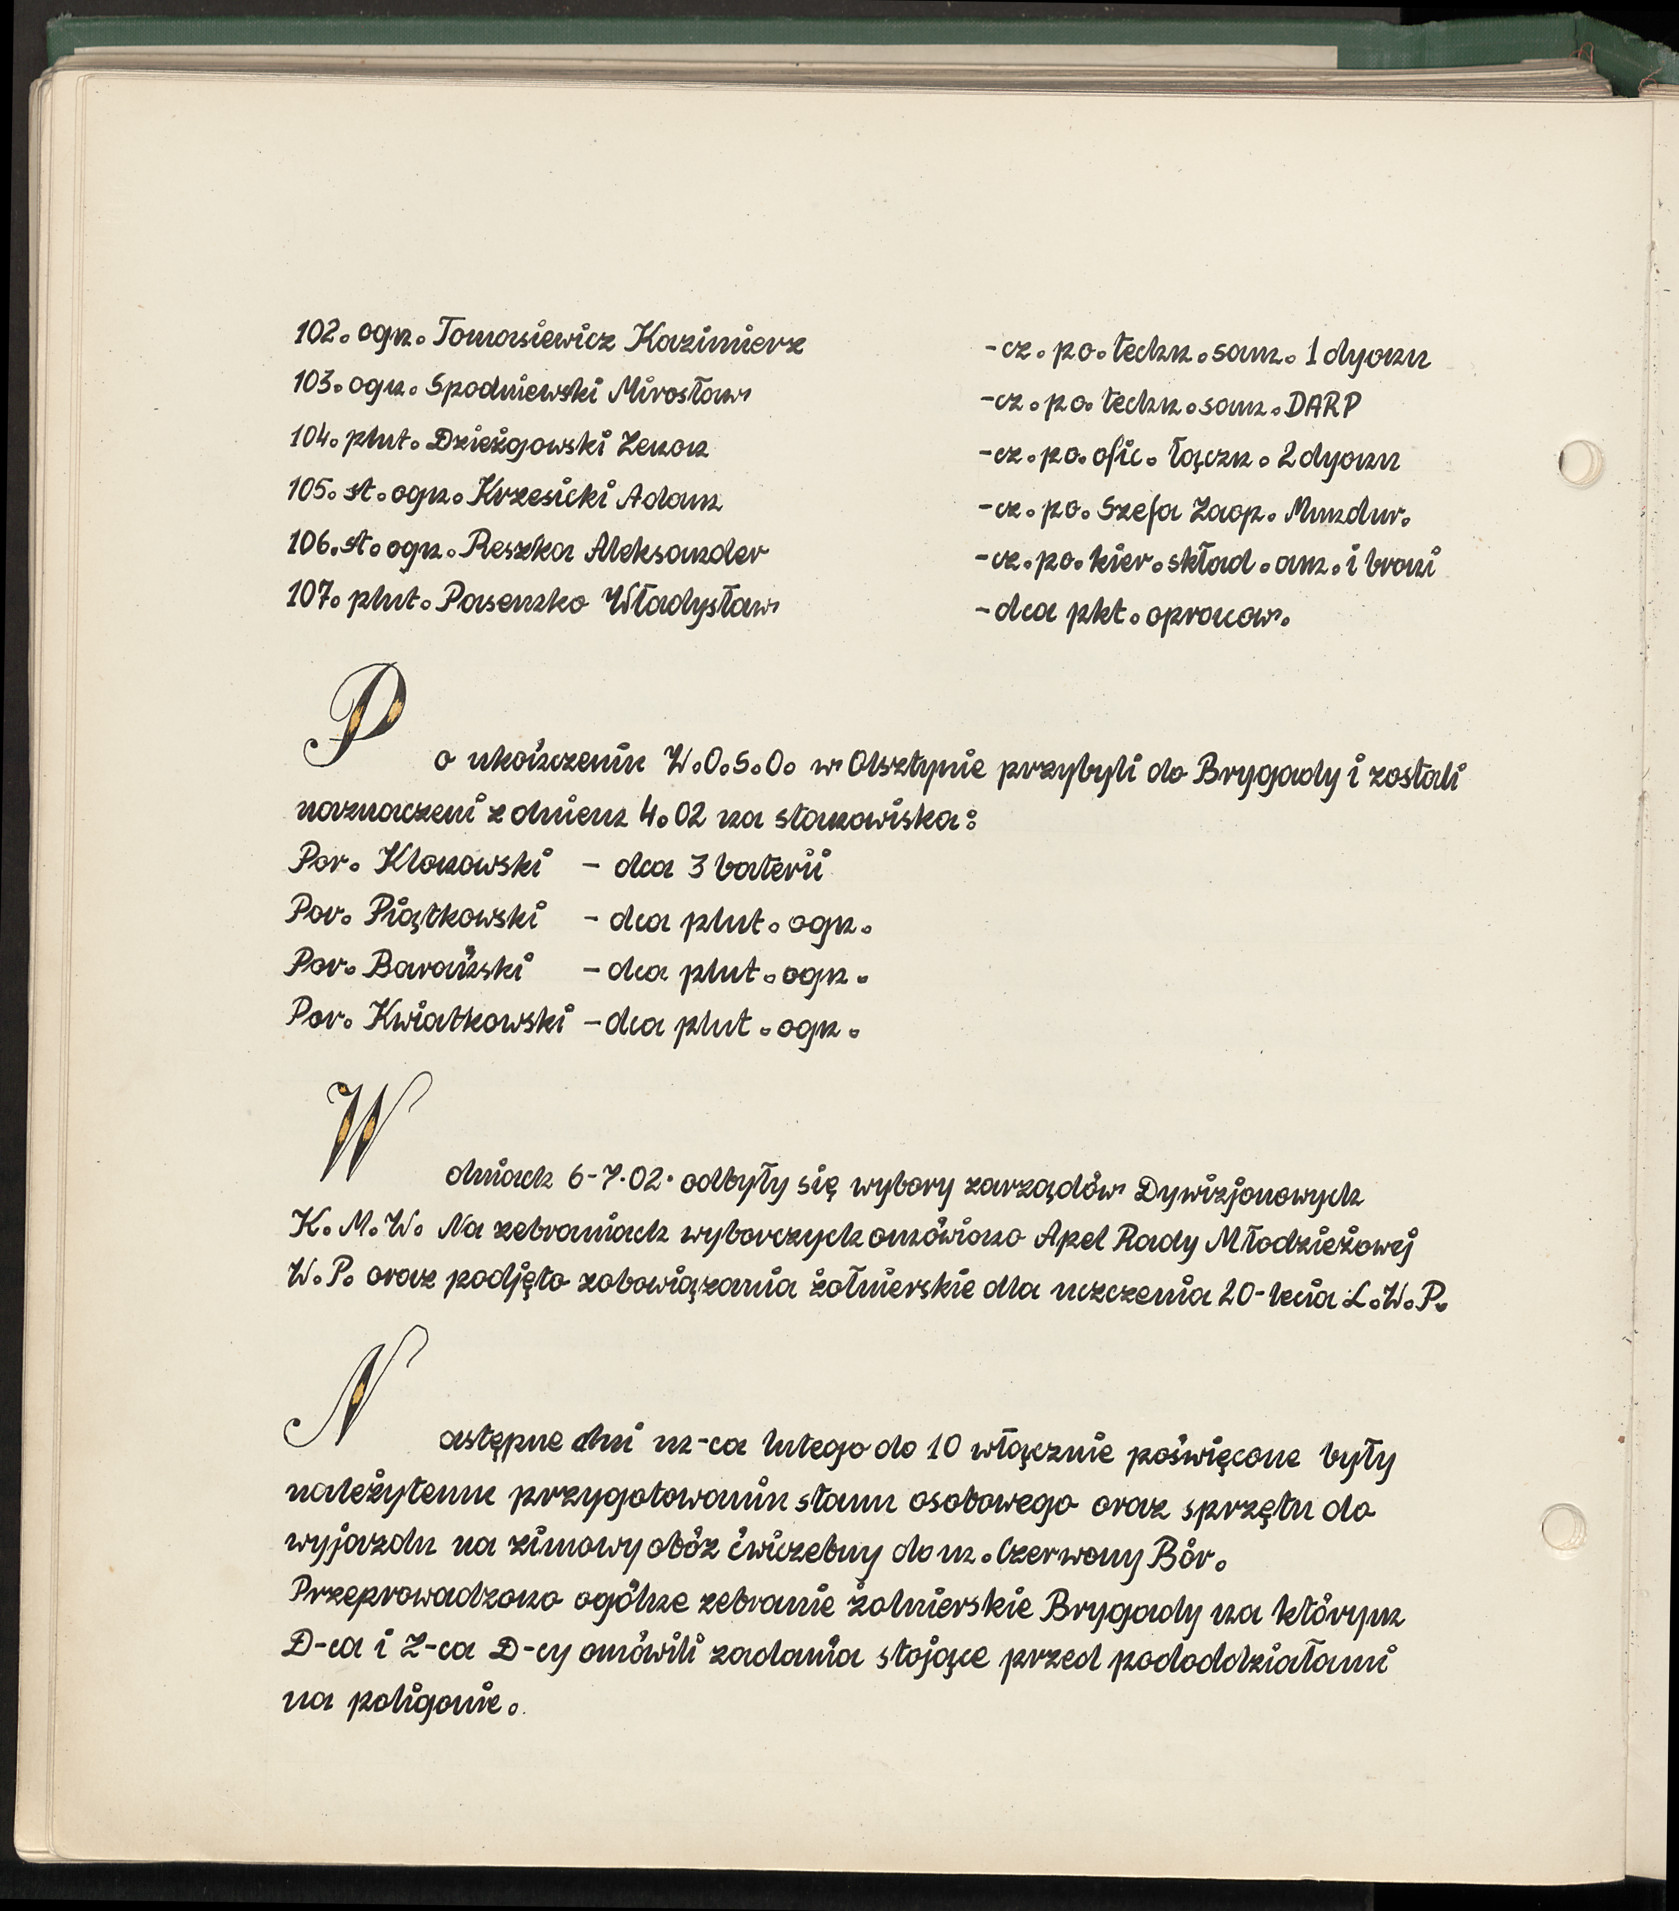 102. ogn. Tomasiewicz Kazimierz - cz. po. techn. sam. 1 dyonu
103. ogn. Spodniewski Mirosław - cz. po. techn. sam. DARP
104. plut. Dzieżgowski Zenon - cz. po. ofic. łączn. 2 dyonu
105. st. ogn. Krzesicki Adam - cz. po. Szefa Zaop. Mundur.
106. st. ogn. Reszka Aleksander - cz. po. kier. skład. am. i broni
107. plut. Pasenko Władysław - dca pkt. opracow.
Po ukończeniu W.O.S.O. w Olsztynie przybyli do Brygady i zostali
naznaczeni z dniem 4.02 na stanowiska:
Por. Klonowski - dca 3 baterii
Por. Piątkowski - dca plut. ogn.
Por. Barański - dca plut. ogn.
Por. Kwiatkowski - dca plut. ogn.
W dniach 6-7.02. odbyły się wybory zarządów Dywizjonowych
K.M.W. Na zebraniach wyborczych omówiono Apel Rady Młodzieżowej
W.P. oraz podjęto zobowiązania żołnierskie dla uczczenia 20-lecia L.W.P.
Następne dni m-ca lutego do 10 włącznie poświęcone były
należytemu przygotowaniu stanu osobowego oraz sprzętu do
wyjazdu na zimowy obóz ćwiczebny do m. Czerwony Bór.
Przeprowadzono ogólne zebranie żolnierskie Brygady na którym
D-ca i Z-ca D-cy omówili zadania stojące przed pododdziałami
na poligonie.